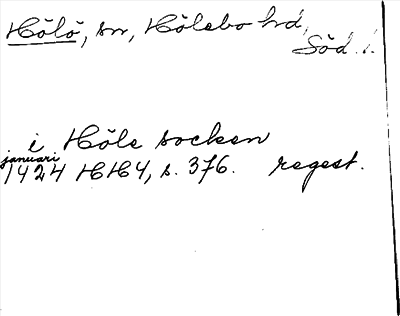 Hölö, sn, Hölebo hd,
Söd. l.
i Höle socken
januari
1424 HH4, s. 376. regest.